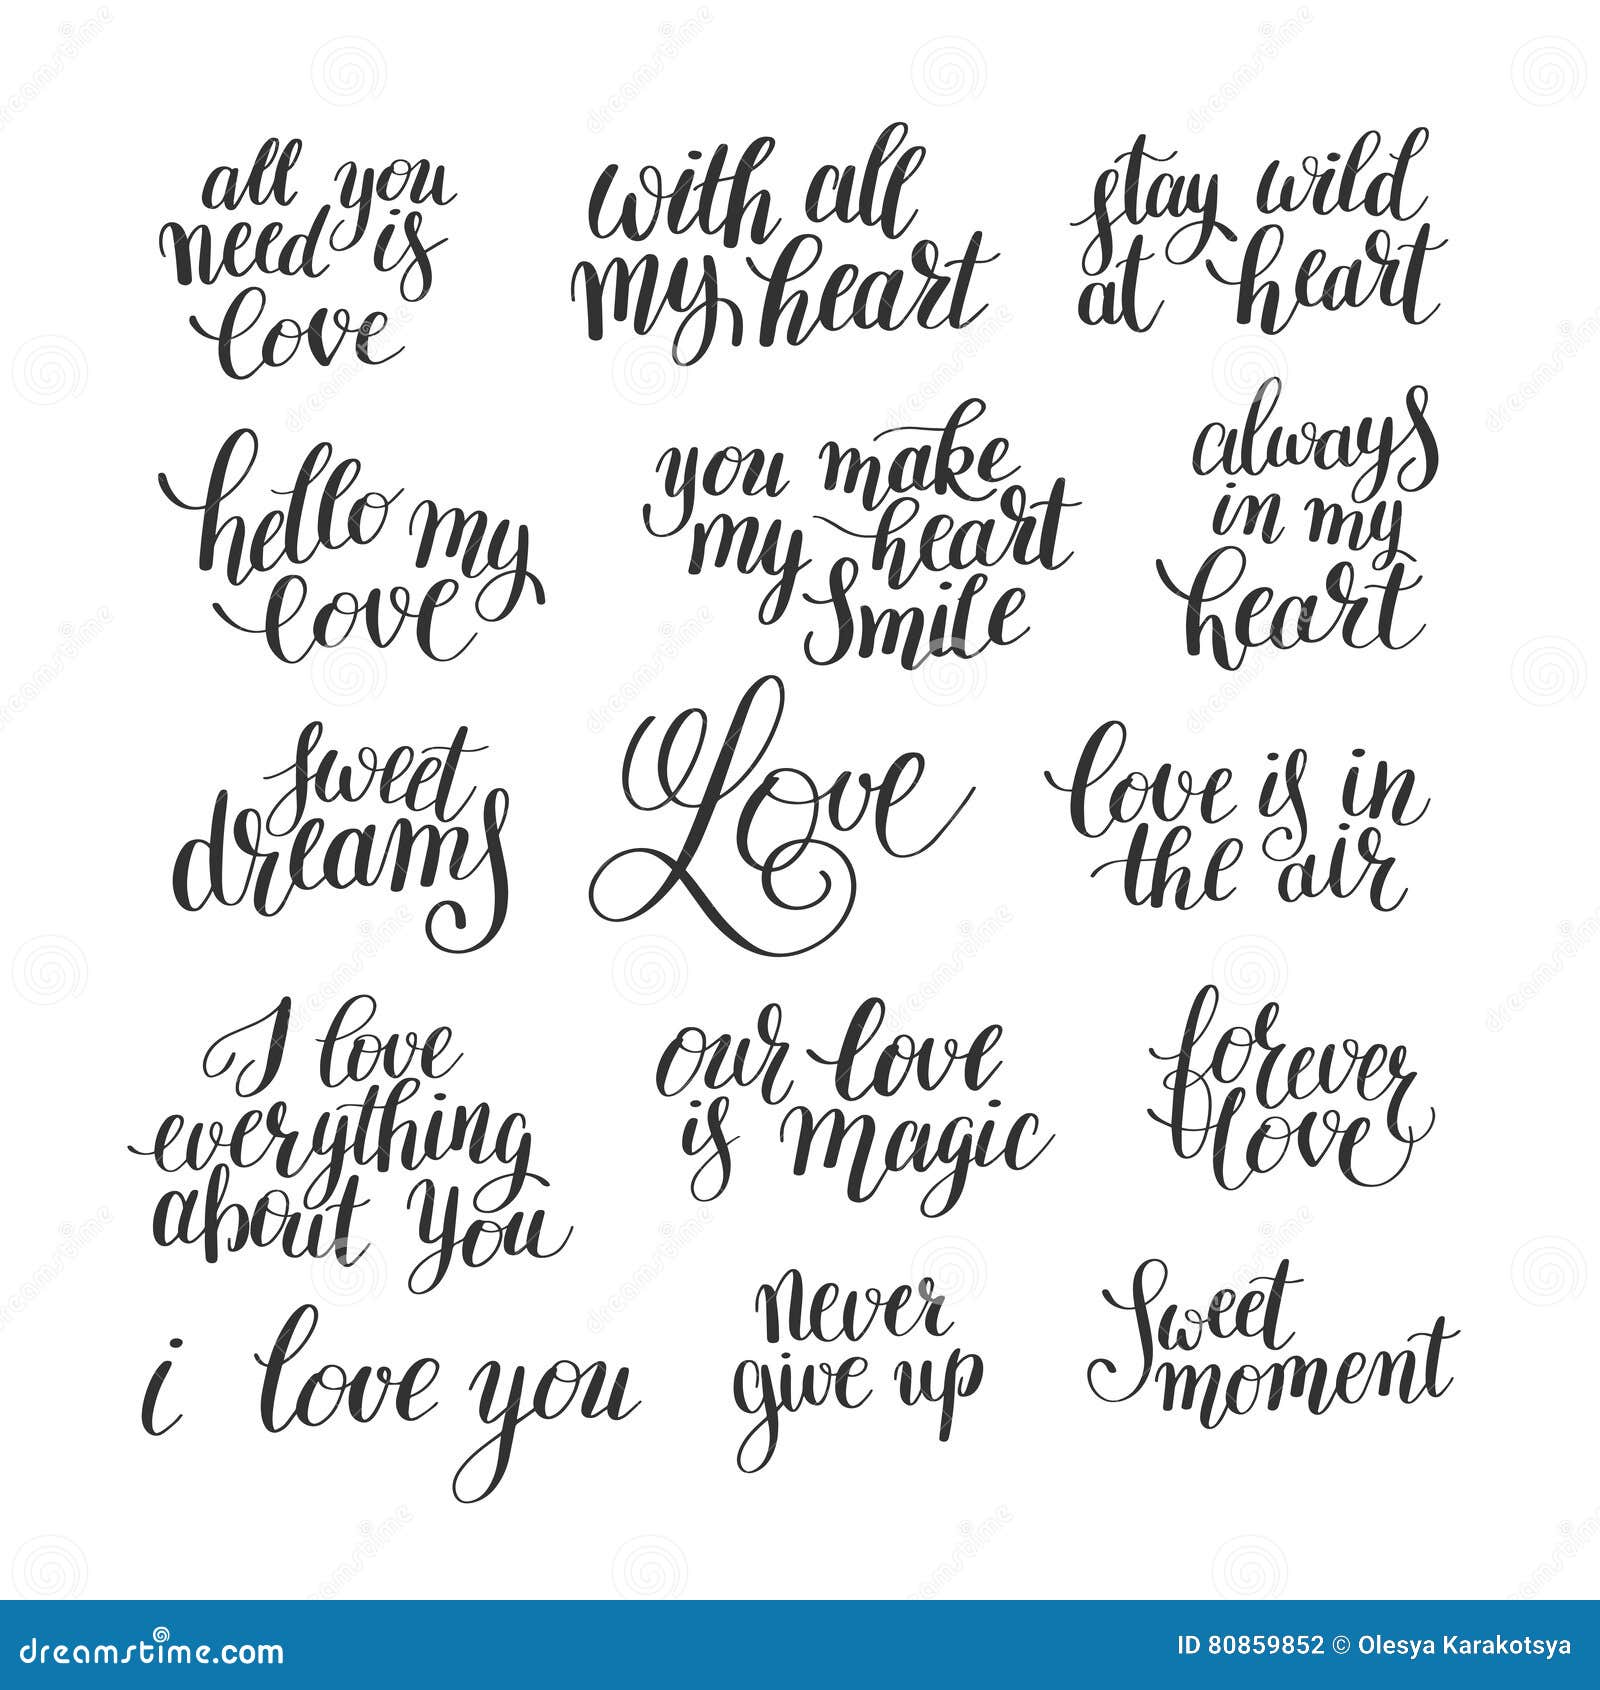 all you
need is
love
with all
my heart
stay wild
at heart
hello my
love
you make
my heart
smile
always
in my
heart
sweet
dreams
Love
love is in
the air
I love
everything
about you
our love
is magic
forever
love
i love you
never
give up
Sweet
moment
dreamstime.com
ID 80859852 © Olesya Karakotsya